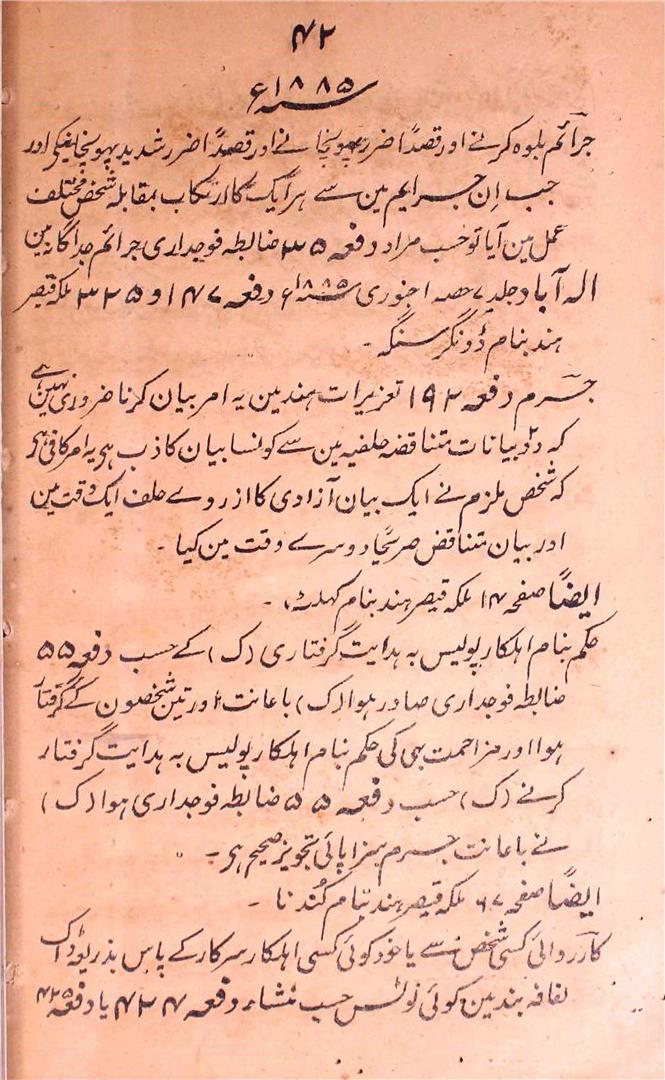 ۴۲
سنہ ۱۸۸۵ء
جرائم بلوہ کرنے اور قصداً ضرر پہونچانے اور قصداً ضرر شدید پہونچانیکی اور
جب اِن جرایم مین سے ہر ایک کا ارتکاب بمقابلہ شخص مختلف
عمل مین آیا تو حسب مراد دفعہ ۳۵ ضابطہ فوجداری جرائم جداگانہ ہین
الہ آباد جلد ۷ حصہ ۱ جنوری سنہ ۱۸۸۵ء دفعہ ۱۴۷ و ۳۲۵ ملکہ قیصر
ہند بنام ڈونگر سنگہ ۔
جرم دفعہ ۱۹۳ تعزیرات ہند مین یہ امر بیان کرنا ضروری نہین ہے
کہ دو بیانات متناقضہ حلفیہ مین سے کونسا بیان کاذب ہے یہ امر کافی ہے
کہ شخص ملزم نے ایک بیان آزادی کا از روے حلف ایک وقت مین
اور بیان متناقض صریحًا دوسرے وقت مین کیا ۔
ایضًا صفحہ ۴۴ ملکہ قیصر ہند بنام ۔
حکم بنام اہلکار پولیس بہ ہدایت گرفتاری (ک) کے حسب دفعہ ۵۵
ضابطہ فوجداری صادر ہوا (ک) باعانت اور تین شخصون کے گرفتار
ہوا اور مزاحمت بھی کی حکم بنام اہلکار پولیس بہ ہدایت گرفتار
کرنے (ک) حسب دفعہ ۵۵ ضابطہ فوجداری ہوا (ک)
نے باعانت جرم سزا پائی تجویز صحیح ہے ۔
ایضًا صفحہ ۶۷ ملکہ قیصر ہند بنام کُندنا ۔
کارروائی کسی شخص سے یا خود کوئی کسی اہلکار سرکار کے پاس بذریعہ ڈاک
لفافہ بند مین کوئی نوٹس حسب منشاء دفعہ ۴۲۴ یا دفعہ ۴۲۵